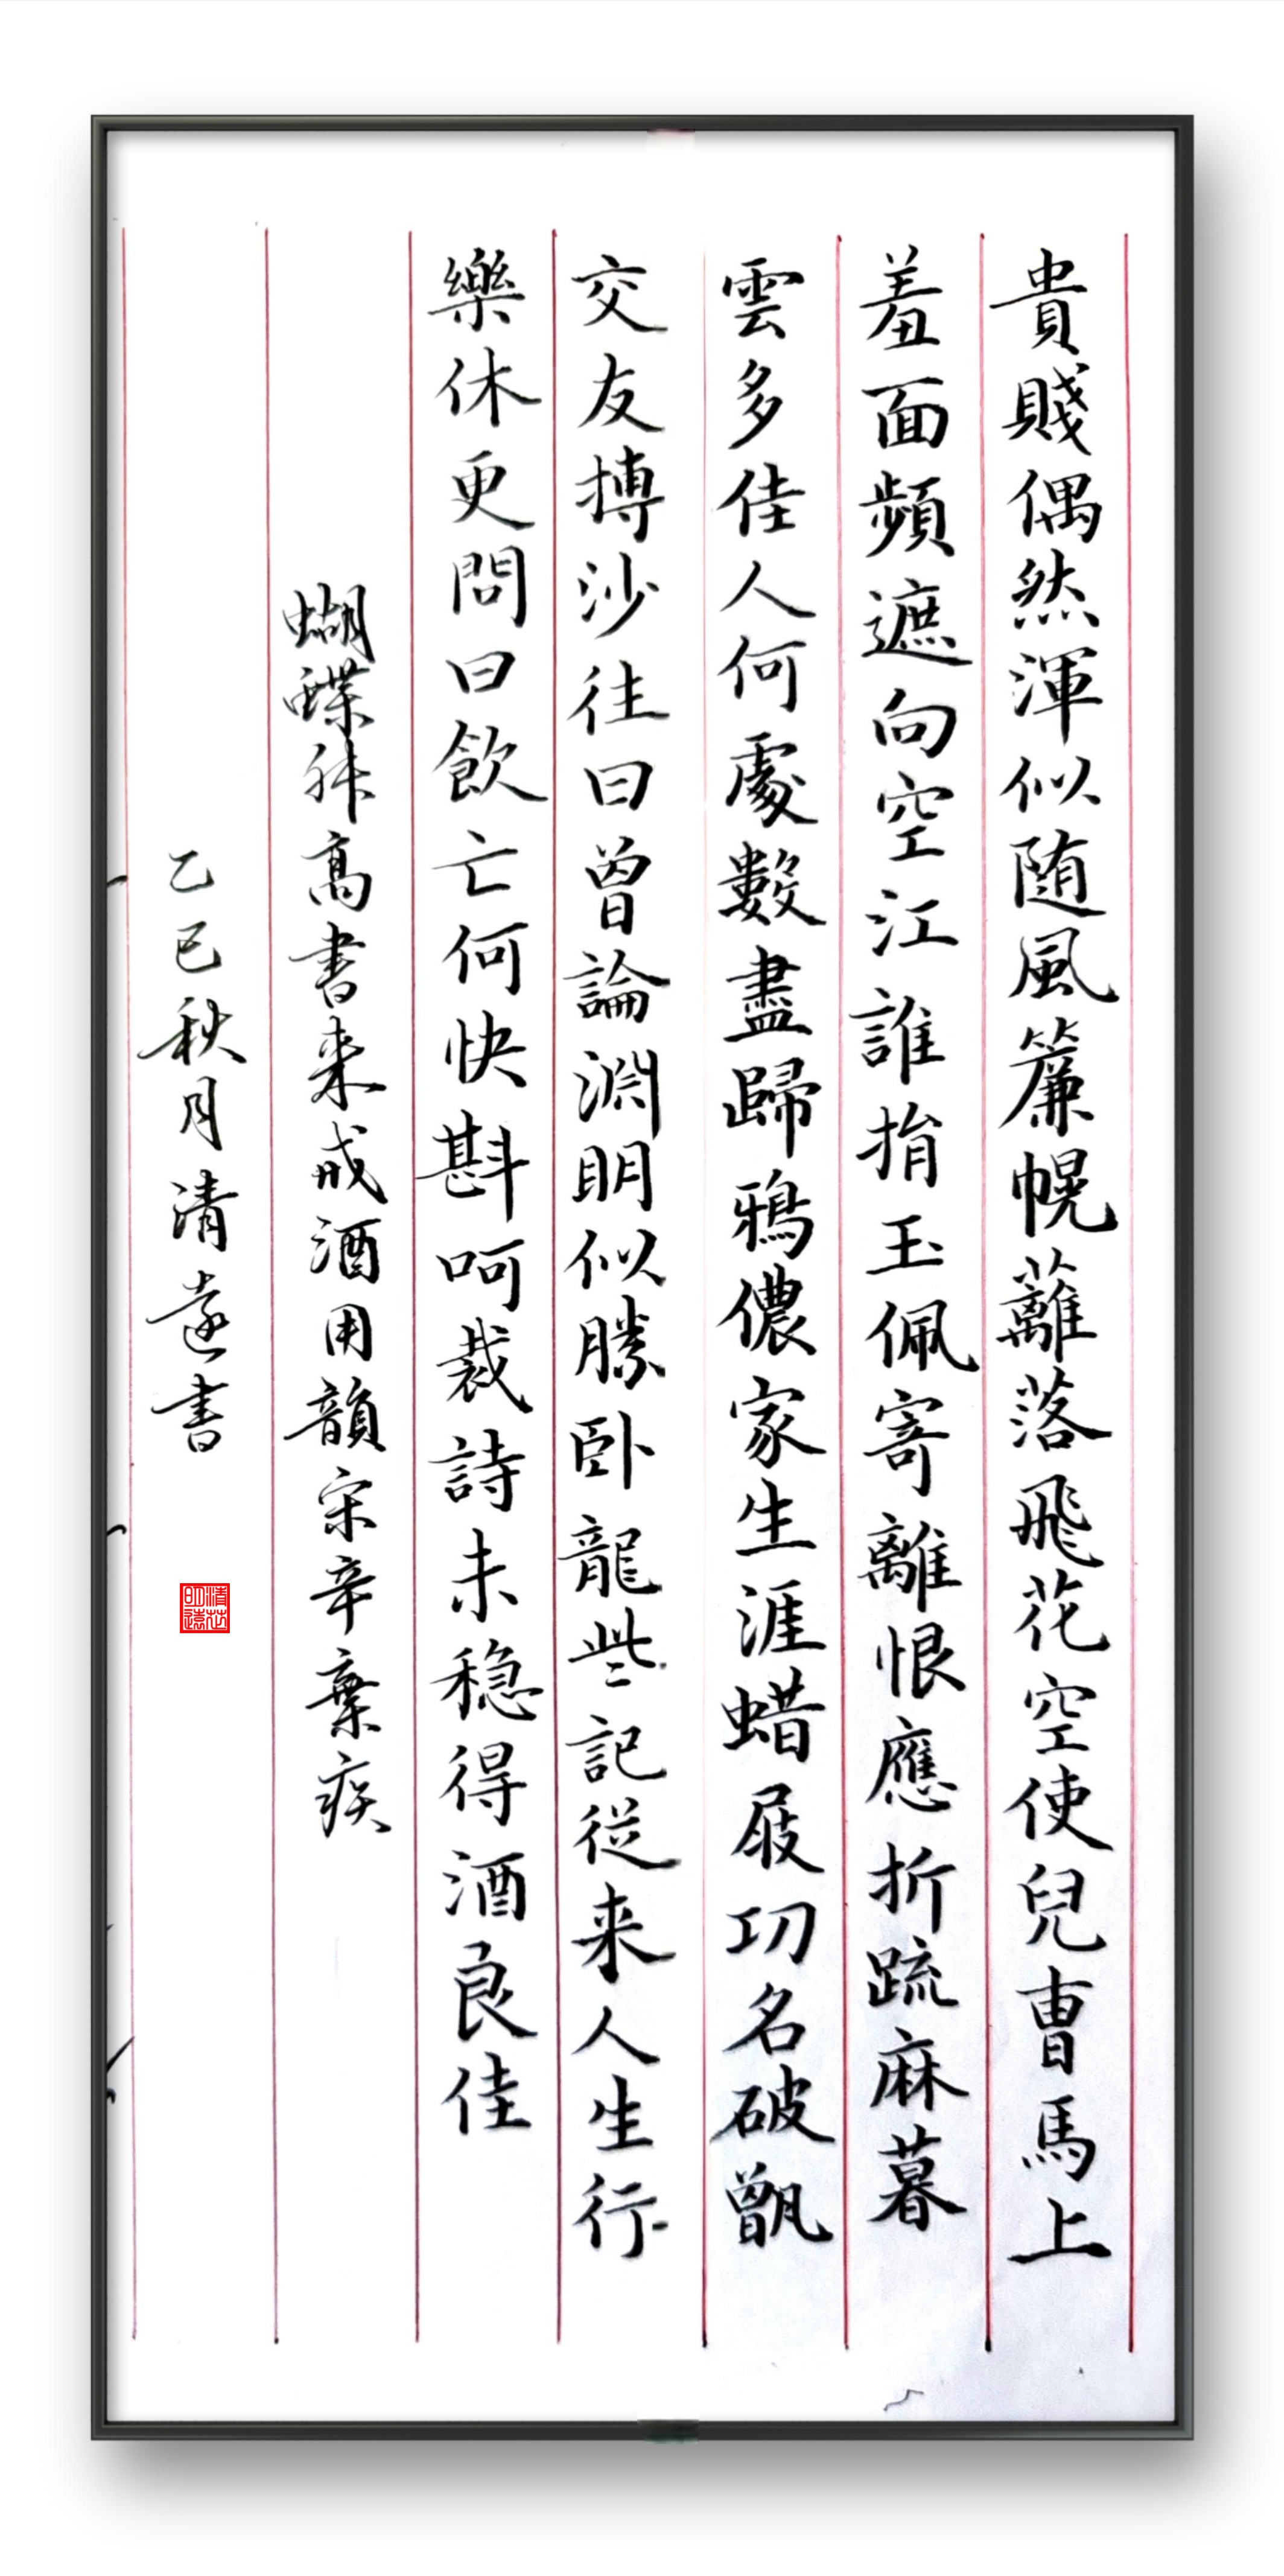 貴賤偶然渾似随風簾幌蘺落飛花空使兒曹馬上
羞面頻遮向空江誰捐玉佩寄離恨應折疏麻暮
雲多佳人何處數盡歸鴉儂家生涯蜡屐功名破甑
交友搏沙往日曾論淵明似勝卧龍些記従来人生行
樂休更問日飲亡何快斟呵裁詩未穏得酒良佳
蝴蝶
高書来戒酒用韻宋辛棄疾
乙巳秋月清遠書